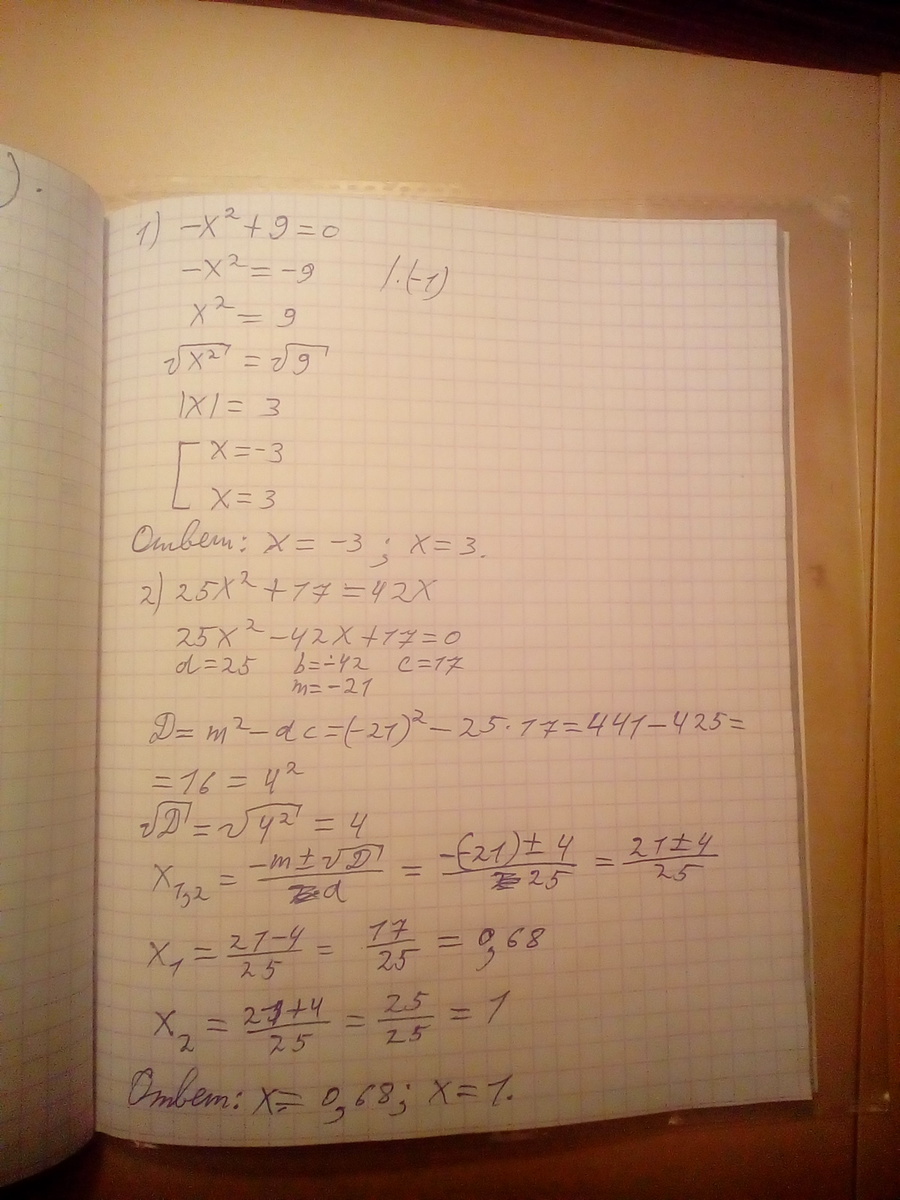 ).
1) -x² + 9 = 0
-x² = -9 /·(-1)
x² = 9
√x² = √9
|x| = 3
[ x = -3
x = 3
Ответ: x = -3 ; x = 3.
2) 25x² + 17 = 42x
25x² - 42x + 17 = 0
d = 25 b = -42 c = 17
m = -21
D = m² - dc = (-21)² - 25·17 = 441 - 425 =
= 16 = 4²
√D = √4² = 4
x₁,₂ = (-m ± √D)/d = (-(-21) ± 4)/25 = (21 ± 4)/25
x₁ = (21-4)/25 = 17/25 = 0,68
x₂ = (21+4)/25 = 25/25 = 1
Ответ: x = 0,68; x = 1.